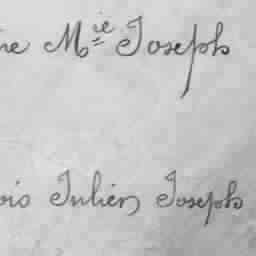 re Mie Joseph
ois Julien Joseph